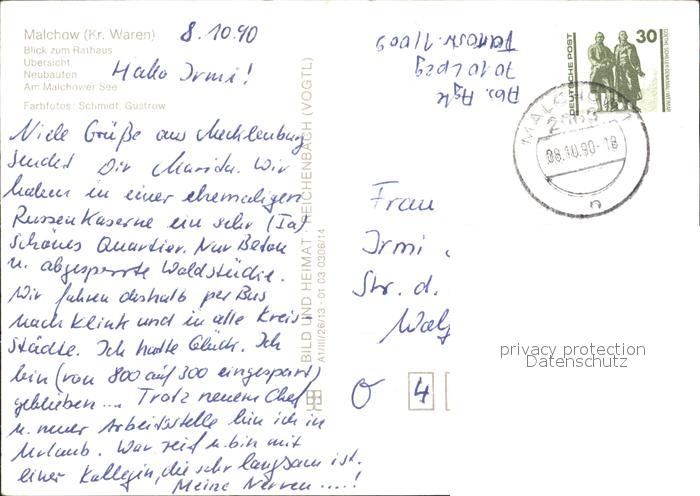 Malchow (Kr. Waren)
Blick zum Rathaus
Übersicht
Neubauten
Am Malchower See
Farbfotos: Schmidt, Güstrow
8.10.90
Hallo Irmi!
Viele Grüße aus Mecklenburg
sendet Dir Marida. Wir
haben in einer ehemaligen
Russenkaserne ein sehr (Ia)
schönes Quartier. Nur Beton
u. abgesperrte Waldstücke.
Wir fahren deshalb per Bus
nach Klink und in alle Kreis-
städte. Ich hatte Glück. Ich
bin (von 800 auf 300 eingespart)
geblieben.... Trotz neuem Chef
u. neuer Arbeitsstelle bin ich in
Urlaub. War reif u. bin mit
einer Kollegin, die sehr langsam ist.
Meine Nerven.....!
BILD UND HEIMAT REICHENBACH (VOGTL)
A1/III/26/13 · 01 03 0306/14
Abs.
7010 Lpzg
DEUTSCHE POST
30
GOETHE-SCHILLER-DENKMAL WEIMAR
MALCHOW 1
08.10.90-18
n
Frau
Irmi
Str. d.
O 4
privacy protection
Datenschutz